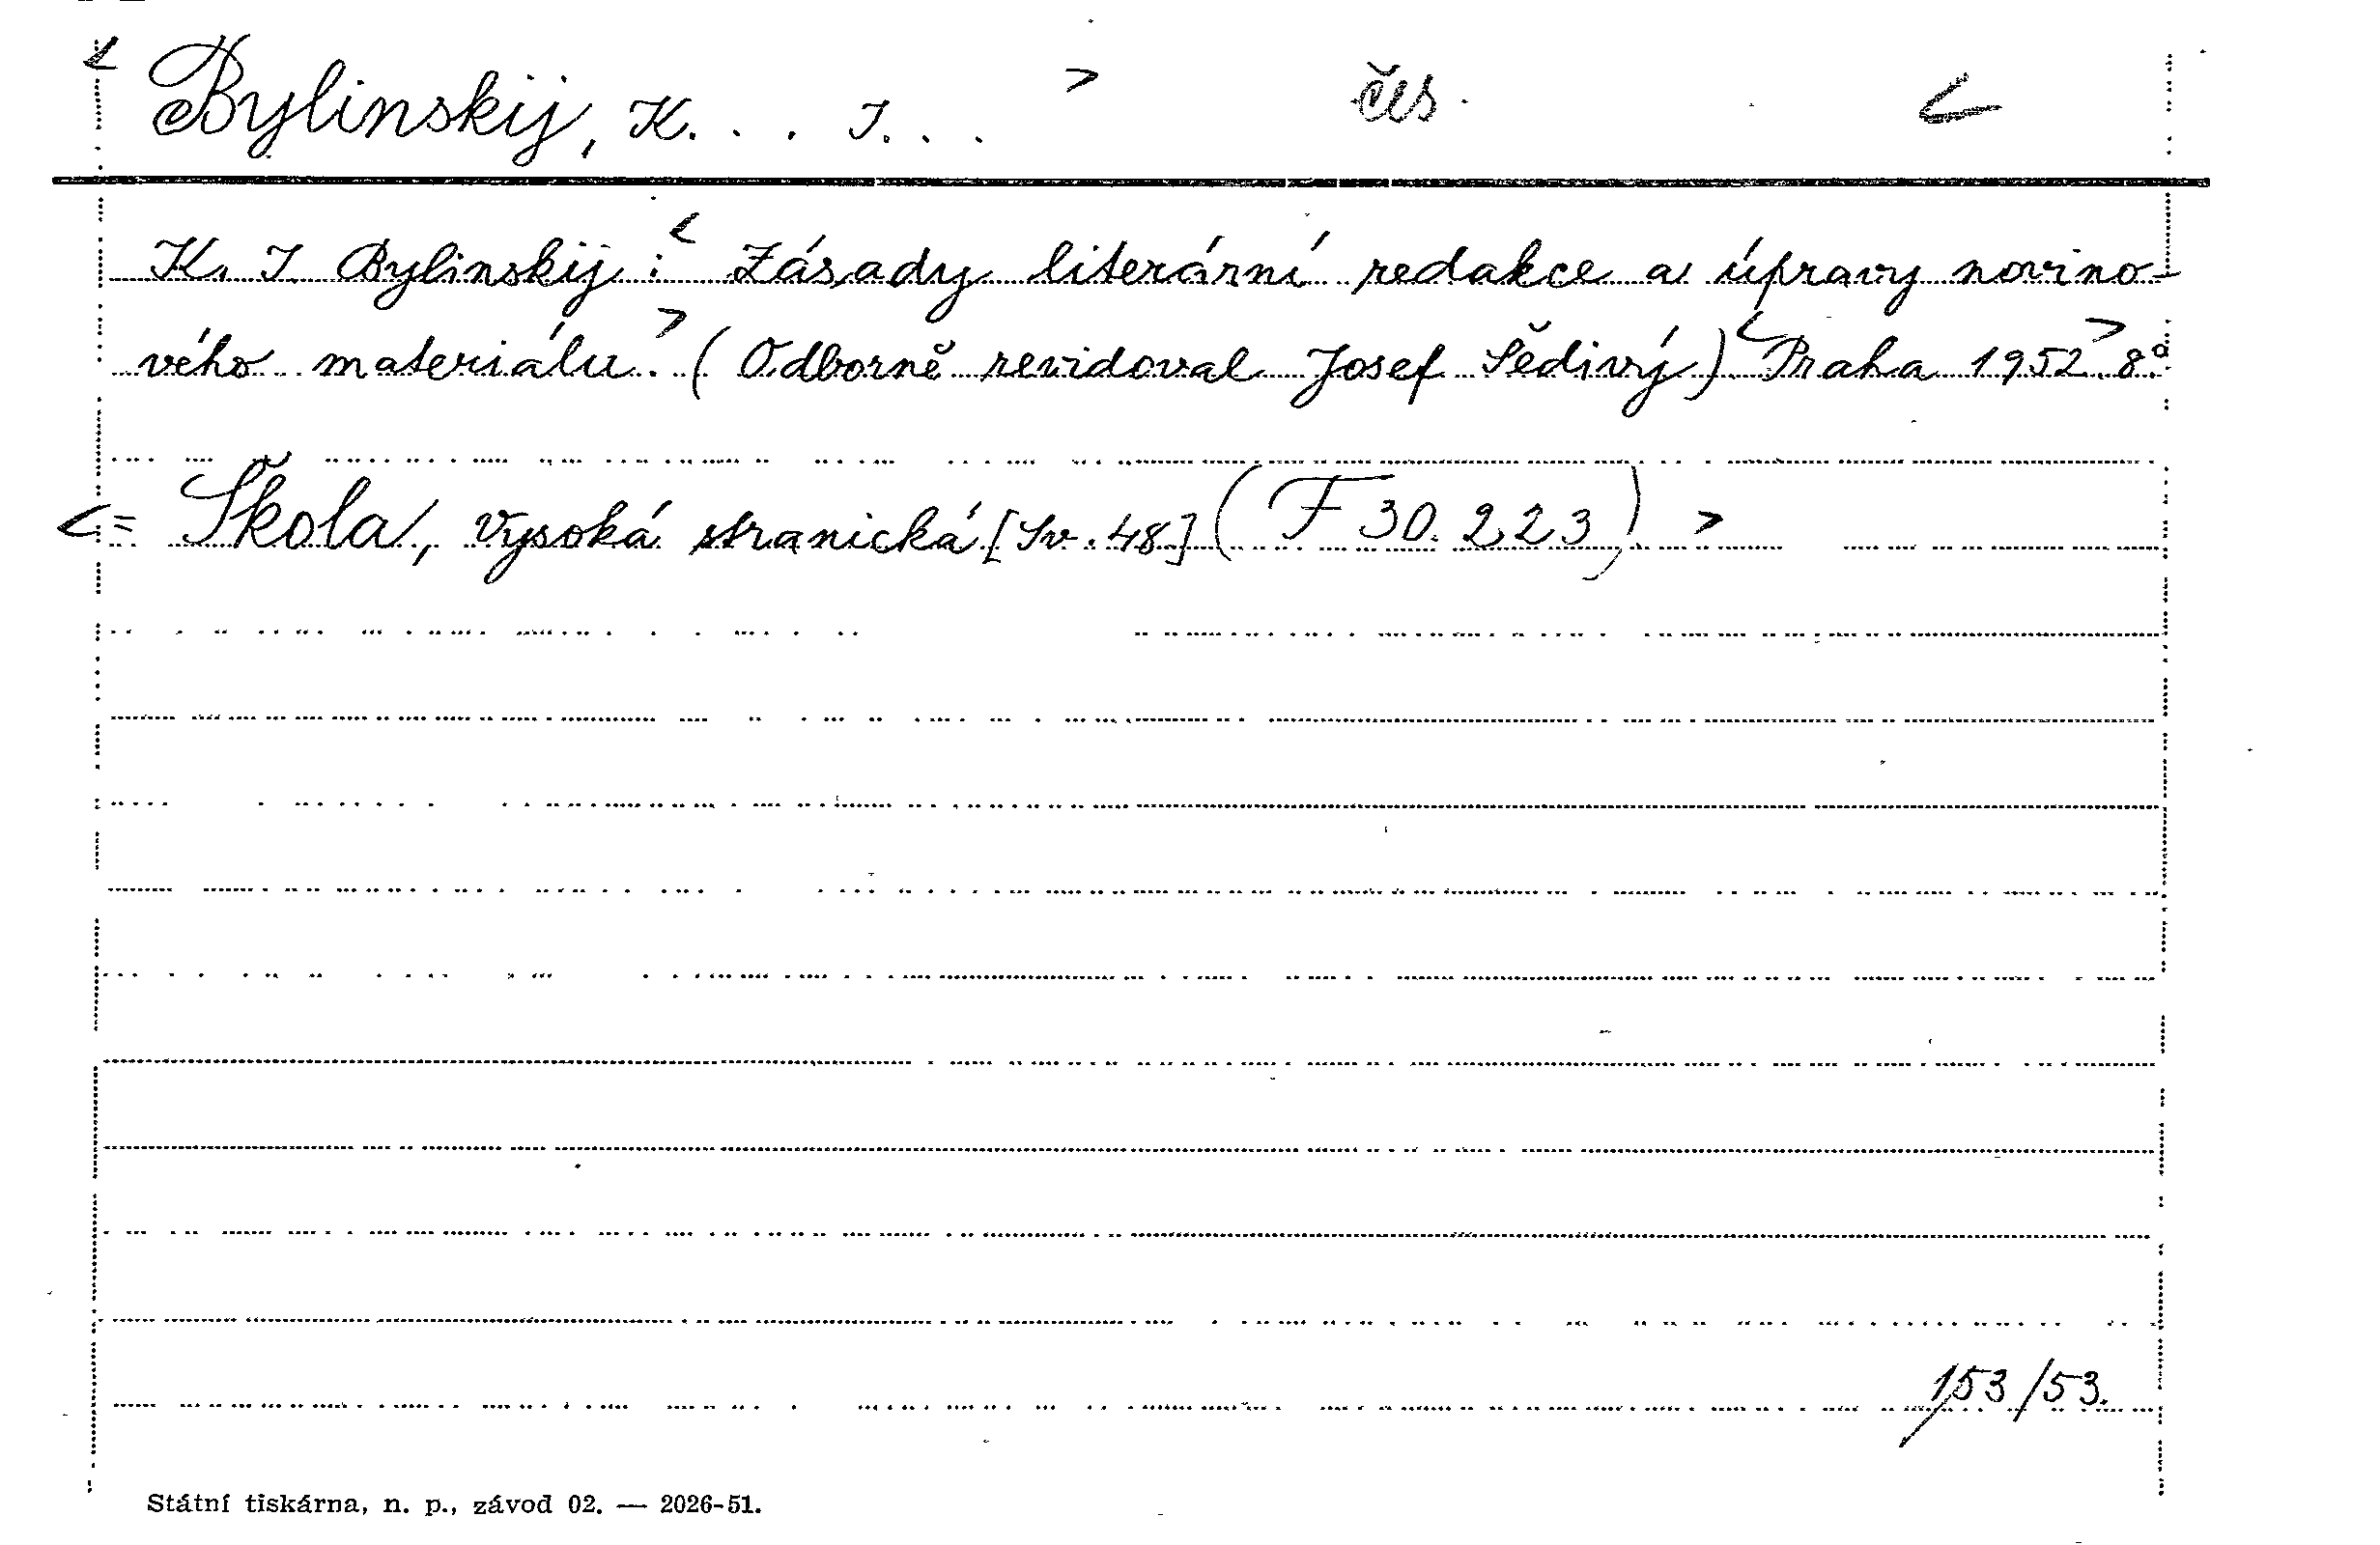 < Bylinskij, K. . . I. . . > čes. <
K. I. Bylinskij: < Zásady literární redakce a úpravy novino-
vého materiálu. > (Odborně revidoval Josef Šedivý) < Praha 1952. > 8°.
< = Škola, vysoká stranická [Sv. 48] (F 30.223) >
153/53.
Státní tiskárna, n. p., závod 02. — 2026-51.